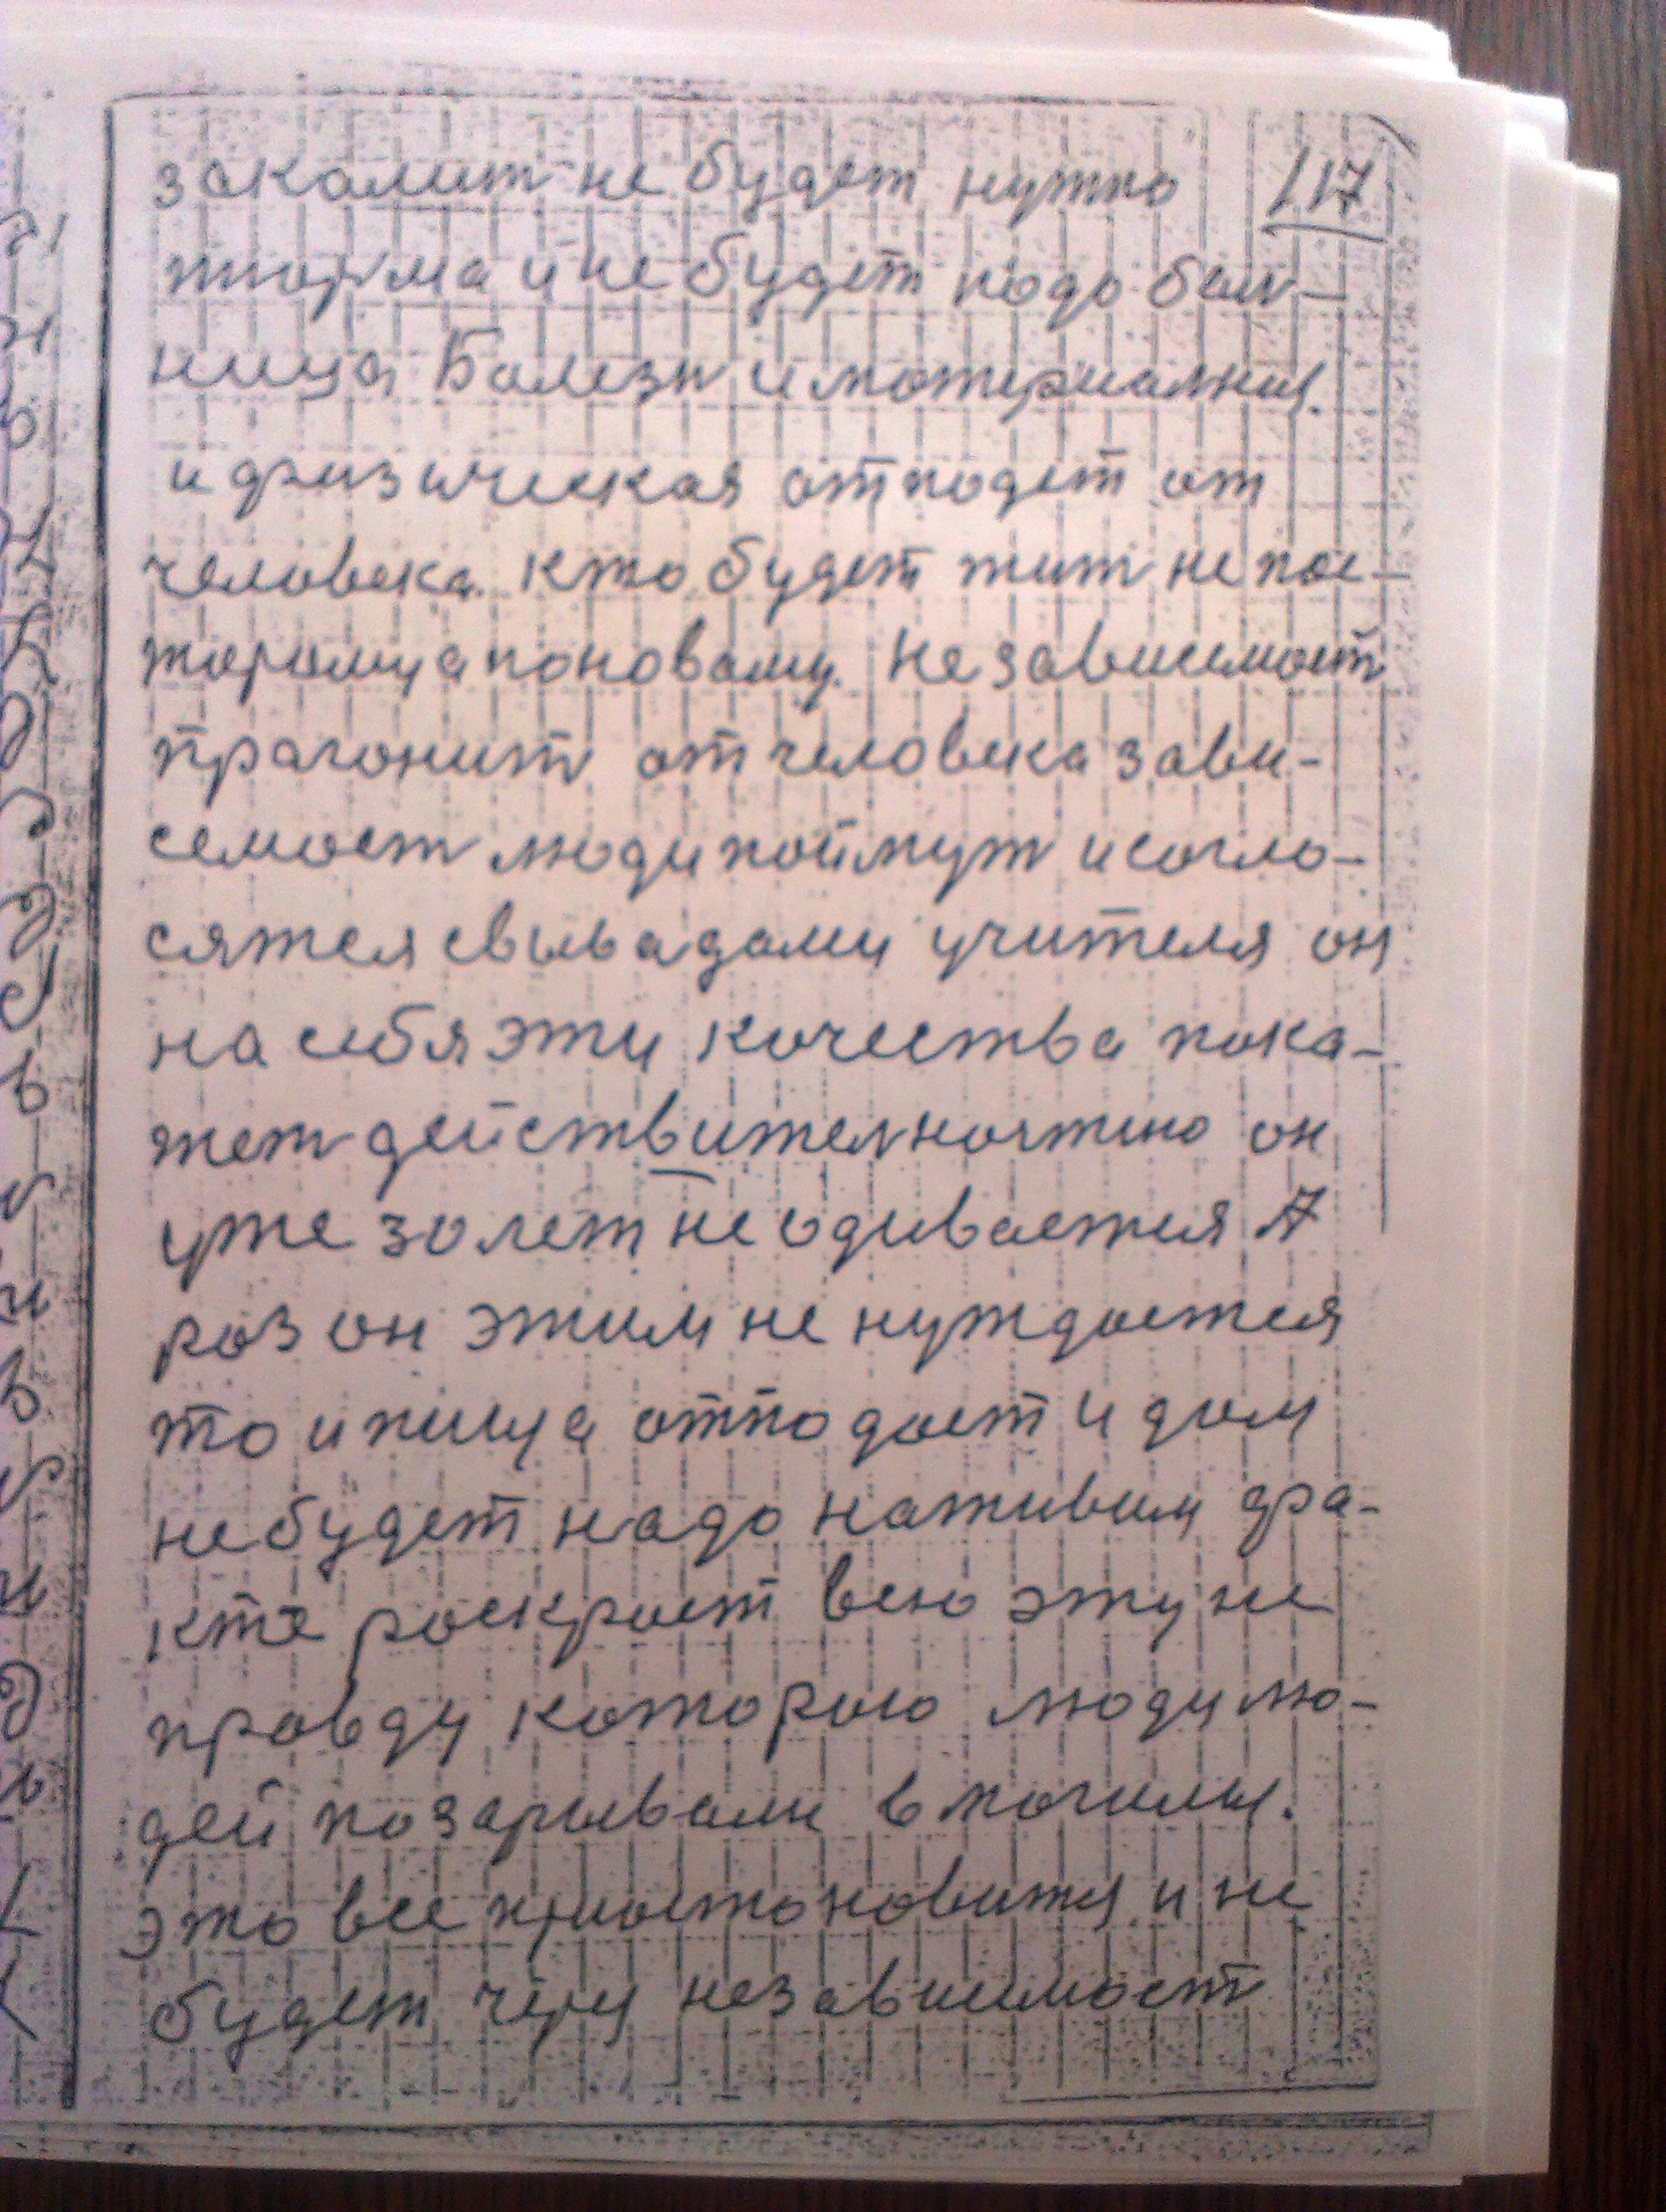 закалит не будет нужно 117
тюрма и не будет надо бол-
ница Болезн и материалния
и физическая отпадет от
человека. кто будет жит не по с-
тарому а по новаму. Независемост
прагонит от человека зави-
семост люди поймут и согла-
сятся свывадами учителя он
на себя эти качества пока-
жет действителночтно он
уже 30 лет не одивается А
раз он этим не нуждается
то и пища отпадает и дом
не будет надо наживим фа-
кте раскрает всю эту не
правду которою люди лю-
дей позарывали в могилы.
это все приостоновится и не
будет через независимост